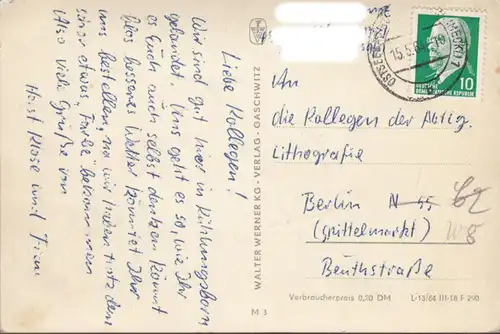 Liebe Kollegen!
Wir sind gut hier in Kühlungsborn
gelandet. Uns geht es so, wie Ihr
es Euch auch selbst denken könnt
besseres Wetter könntet Ihr
uns bestellen, na wir haben trotzdem
schon etwas „Farbe" bekommen
Also viele Grüße von
Horst Klose und Frau
WALTER WERNER KG · VERLAG · GASCHWITZ
M 3
15.5.64
DEUTSCHE
DEMOKRATISCHE REPUBLIK
10
An
die Kollegen der Abtlg.
Lithografie
Berlin N 65
(Spittelmarkt) W 8
Beuthstraße
Verbraucherpreis 0,20 DM L·13/64 III-18 F 290